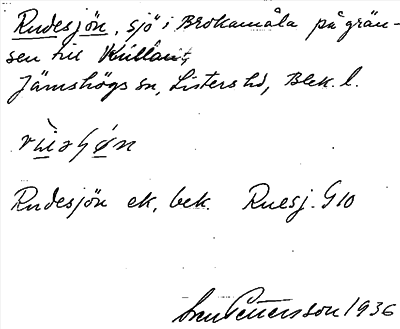 Rudesjön, sjö i Brokamåla på grän-
sen till
Jämshögs sn, Listers hd, Blek. l.
Rudesjön ek, bek. Ruesj. G10
Sven Pettersson 1936